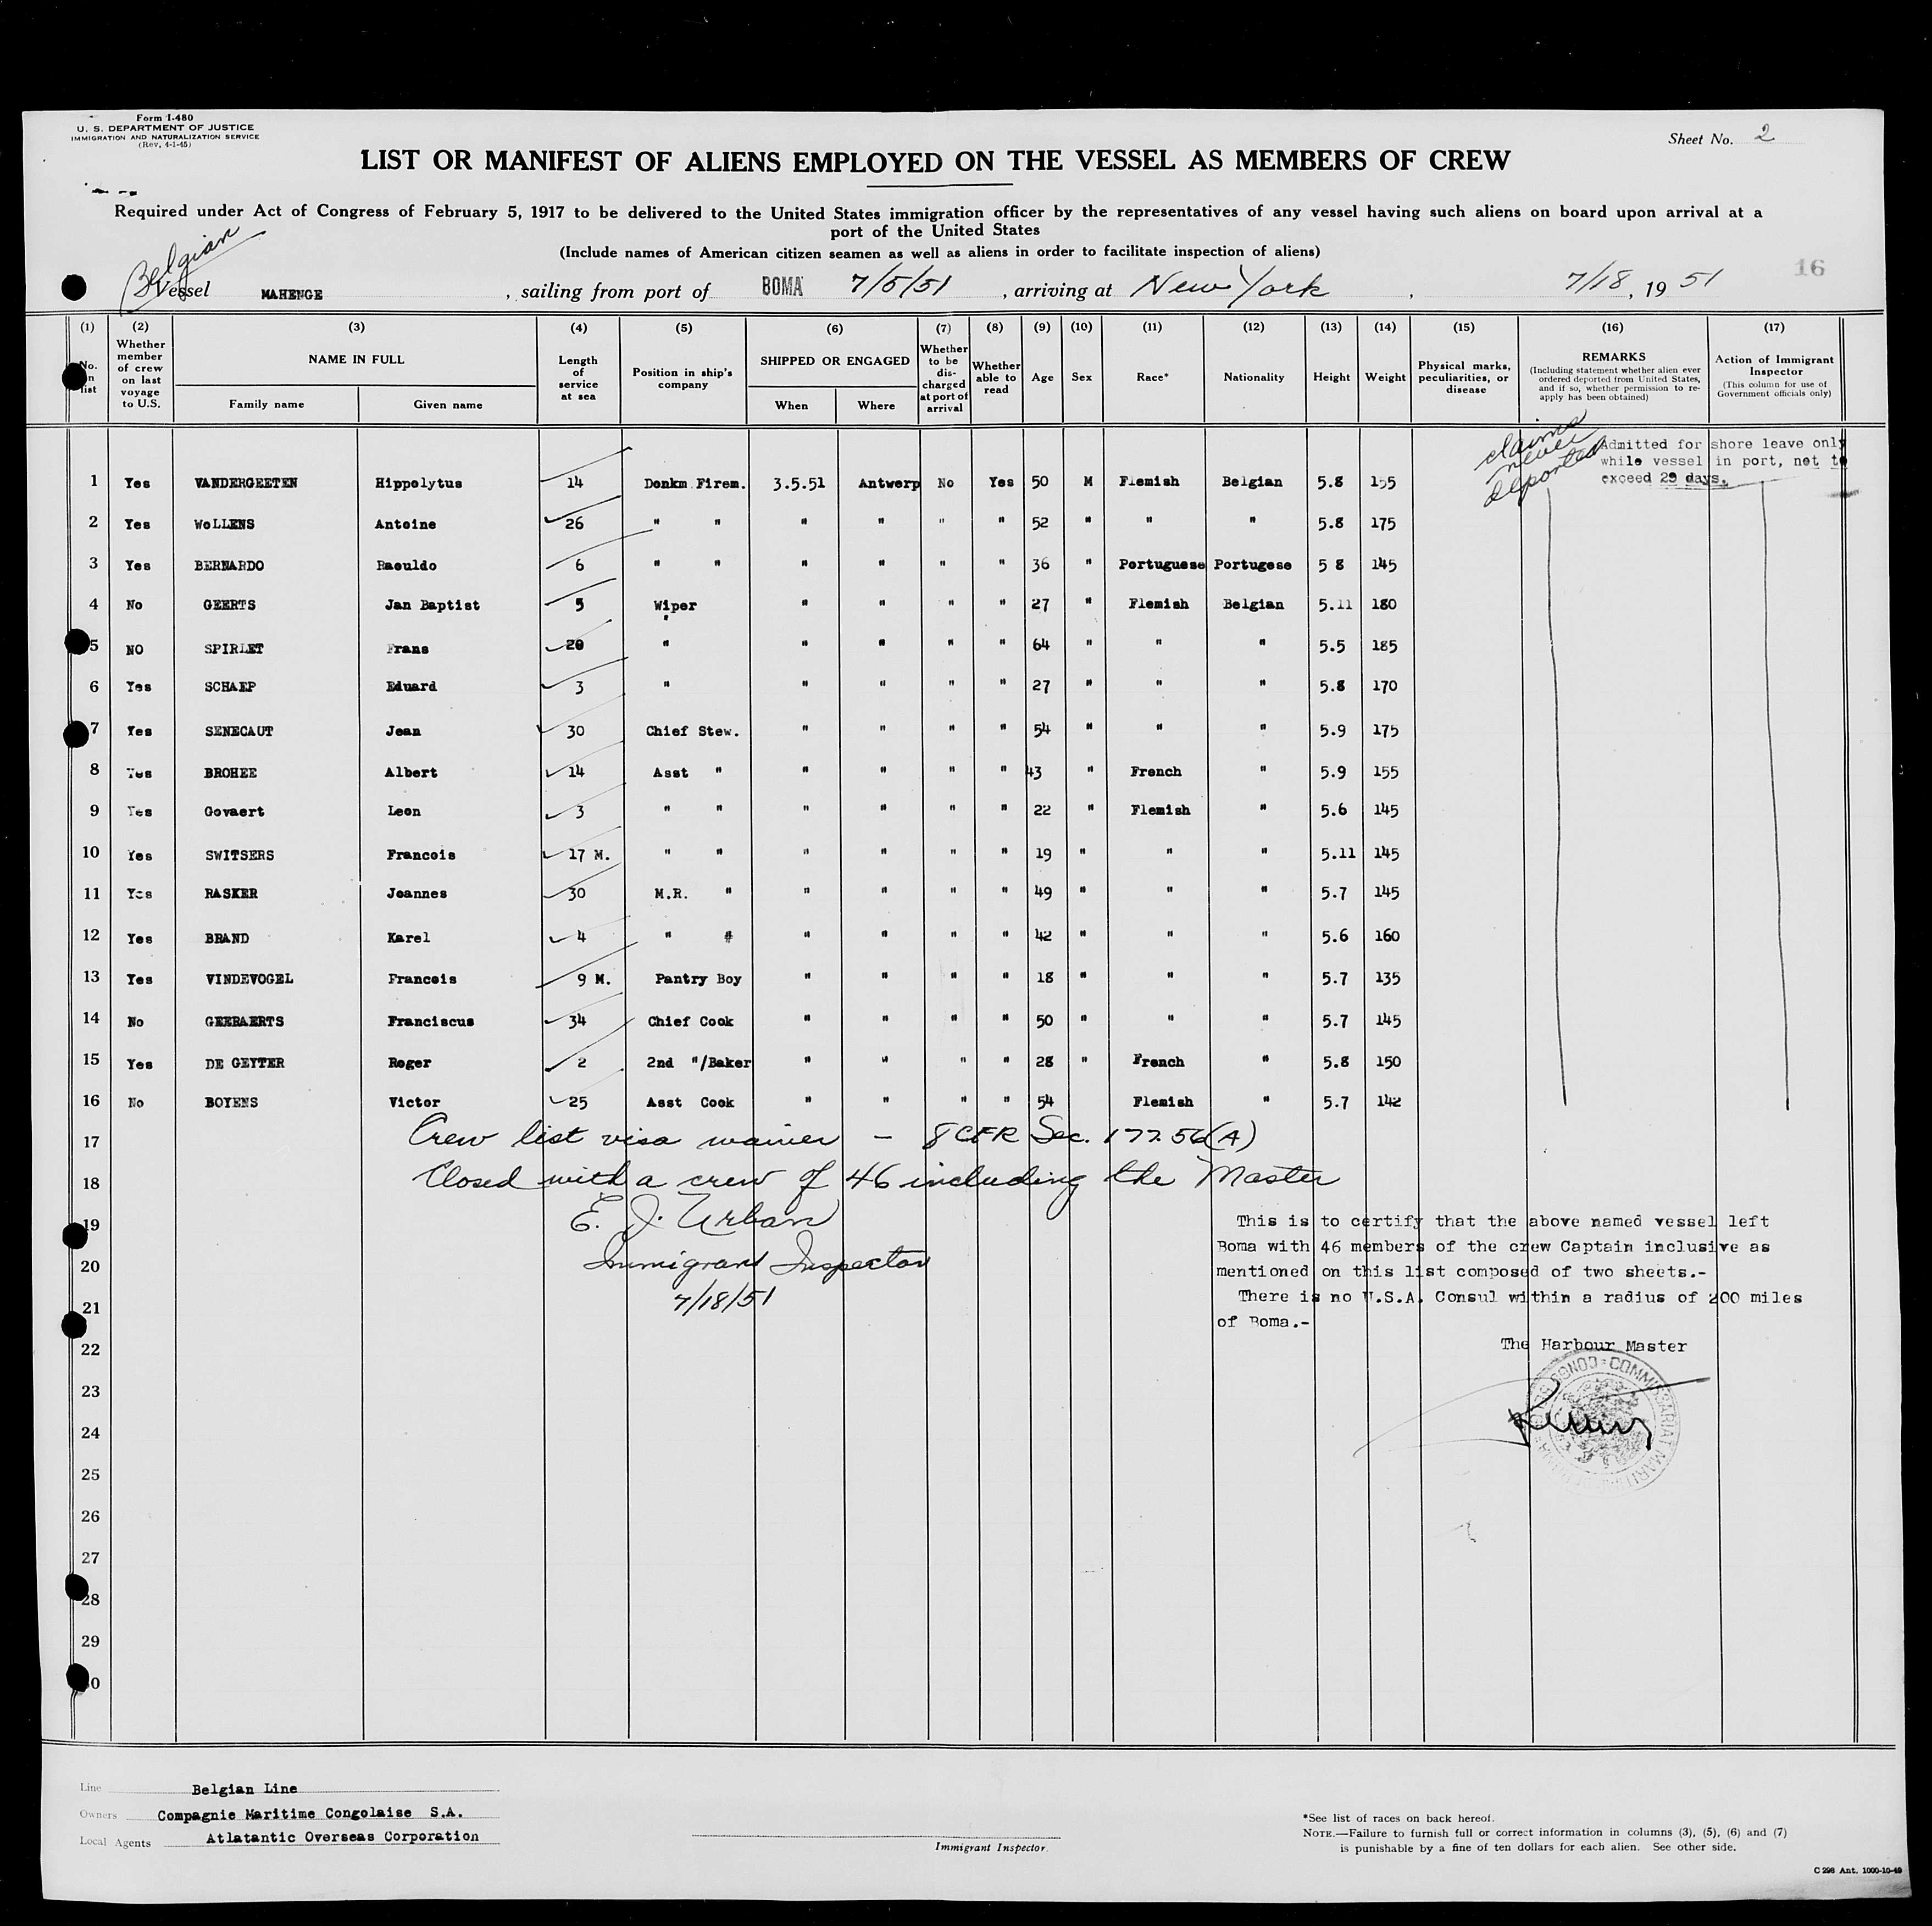 Form I-480
U. S. DEPARTMENT OF JUSTICE
IMMIGRATION AND NATURALIZATION SERVICE
(Rev. 4-1-45)
Sheet No. 2
LIST OR MANIFEST OF ALIENS EMPLOYED ON THE VESSEL AS MEMBERS OF CREW
Required under Act of Congress of February 5, 1917 to be delivered to the United States immigration officer by the representatives of any vessel having such aliens on board upon arrival at a
port of the United States
(Include names of American citizen seamen as well as aliens in order to facilitate inspection of aliens)
Belgian
16
Vessel MAHENGE , sailing from port of BOMA 7/5/51 , arriving at New York , 7/18, 19 51
(1) (2) (3) (4) (5) (6) (7) (8) (9) (10) (11) (12) (13) (14) (15) (16) (17)
No. on list
Whether member of crew on last voyage to U.S.
NAME IN FULL
Family name Given name
Length of service at sea
Position in ship's company
SHIPPED OR ENGAGED
When Where
Whether to be discharged at port of arrival
Whether able to read
Age Sex Race* Nationality Height Weight
Physical marks, peculiarities, or disease
REMARKS
(Including statement whether alien ever ordered deported from United States, and if so, whether permission to re-apply has been obtained)
Action of Immigrant Inspector
(This column for use of Government officials only)
claims never deported
Admitted for shore leave only
while vessel in port, not to
exceed 29 days.
1 Yes VANDERGEETEN Hippolytus 14 Donkm Firem. 3.5.51 Antwerp No Yes 50 M Flemish Belgian 5.8 155
2 Yes WoLLENS Antoine 26 " " " " " " 52 " " " 5.8 175
3 Yes BERNARDO Raouldo 6 " " " " " " 36 " Portuguese Portugese 5 8 145
4 No GEERTS Jan Baptist 5 Wiper " " " " 27 " Flemish Belgian 5.11 180
5 NO SPIRLET Frans 20 " " " " " 64 " " " 5.5 185
6 Yes SCHAEP Eduard 3 " " " " " 27 " " " 5.8 170
7 Yes SENECAUT Jean 30 Chief Stew. " " " " 54 " " " 5.9 175
8 Yes BROHEE Albert 14 Asst " " " " " 43 " French " 5.9 155
9 Yes Govaert Leon 3 " " " " " " 22 " Flemish " 5.6 145
10 Yes SWITSERS Francois 17 M. " " " " " " 19 " " " 5.11 145
11 Yes RASKER Joannes 30 M.R. " " " " " 49 " " " 5.7 145
12 Yes BRAND Karel 4 " " " " " " 42 " " " 5.6 160
13 Yes VINDEVOGEL Francois 9 M. Pantry Boy " " " " 18 " " " 5.7 135
14 No GEERAERTS Franciscus 34 Chief Cook " " " " 50 " " " 5.7 145
15 Yes DE GEYTER Roger 2 2nd "/Baker " " " " 28 " French " 5.8 150
16 No BOYENS Victor 25 Asst Cook " " " " 54 Flemish " 5.7 142
17 Crew list visa waiver - 8 CFR Sec. 177.56(A)
18 Closed with a crew of 46 including the Master
19 E. J. Urban
20 Immigrant Inspector
21 7/18/51
This is to certify that the above named vessel left
Boma with 46 members of the crew Captain inclusive as
mentioned on this list composed of two sheets.-
There is no U.S.A. Consul within a radius of 200 miles
of Boma.-
The Harbour Master
22
23
24
25
26
27
28
29
30
Line Belgian Line
Owners Compagnie Maritime Congolaise S.A.
Local Agents Atlatantic Overseas Corporation
Immigrant Inspector.
*See list of races on back hereof.
NOTE.—Failure to furnish full or correct information in columns (3), (5), (6) and (7)
is punishable by a fine of ten dollars for each alien. See other side.
C 298 Ant. 1000-10-49